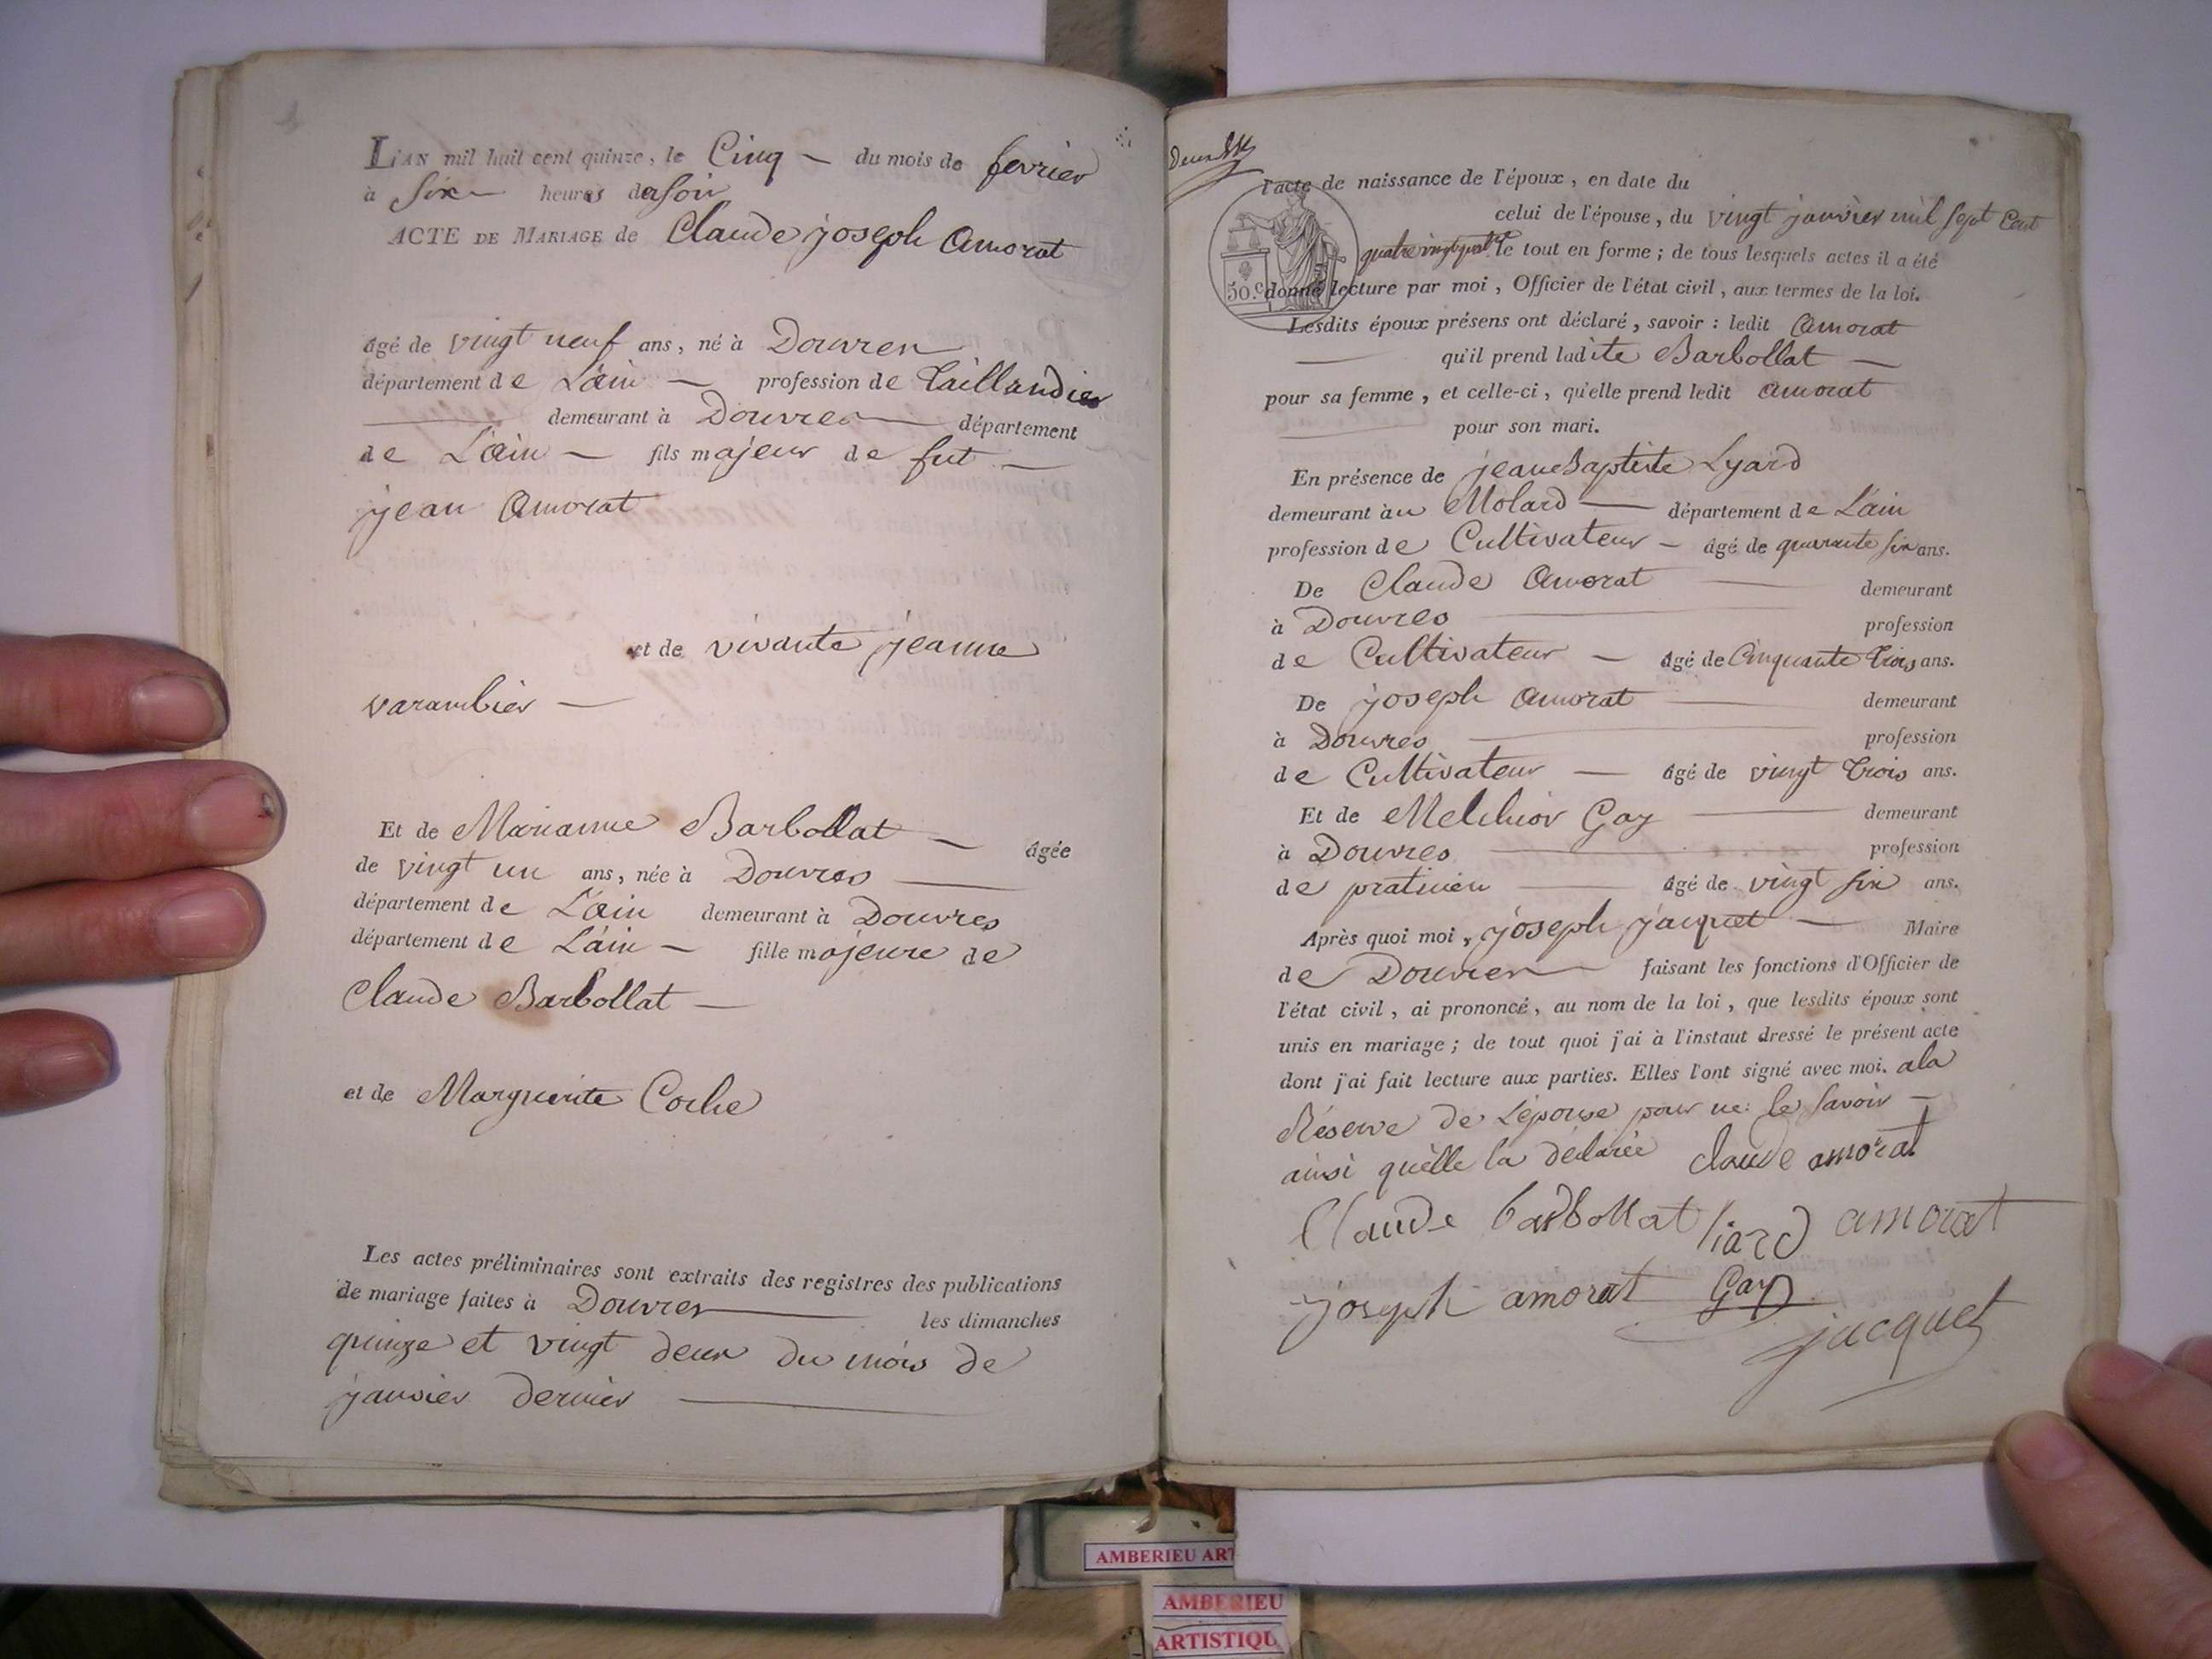 L'AN mil huit cent quinze, le Cinq du mois de fevrier
à Six heures du soir
ACTE DE MARIAGE de Claude joseph Amorat
âgé de vingt neuf ans, né à Douvres
département de L'ain profession de taillandier
demeurant à Douvres département
de L'ain fils majeur de fut
jean Amorat
et de vivante jeanne
varambier
Et de Marianne Barbollat âgée
de vingt un ans, née à Douvres
département de L'ain demeurant à Douvres
département de L'ain fille majeure de
Claude Barbollat
et de Marguerite Coche
Les actes préliminaires sont extraits des registres des publications
de mariage faites à Douvres les dimanches
quinze et vingt deux du mois de
janvier dernier
l'acte de naissance de l'époux, en date du
celui de l'épouse, du vingt janvier mil sept Cent
quatre vingt le tout en forme ; de tous lesquels actes il a été
50.c donné lecture par moi, Officier de l'état civil, aux termes de la loi.
Lesdits époux présens ont déclaré, savoir : ledit Amorat
qu'il prend ladite Barbollat
pour sa femme, et celle-ci, qu'elle prend ledit amorat
pour son mari.
En présence de jean Baptiste Lyard
demeurant au Molard département de L'ain
profession de Cultivateur âgé de quarante six ans.
De Claude Amorat demeurant
à Douvres profession
de Cultivateur âgé de Cinquante trois ans.
De joseph Amorat demeurant
à Douvres profession
de Cultivateur âgé de vingt trois ans.
Et de Melchior Gay demeurant
à Douvres profession
de praticien âgé de vingt six ans.
Après quoi moi, joseph jacquet Maire
de Douvres faisant les fonctions d'Officier de
l'état civil, ai prononcé, au nom de la loi, que lesdits époux sont
unis en mariage ; de tout quoi j'ai à l'instaut dressé le présent acte
dont j'ai fait lecture aux parties. Elles l'ont signé avec moi. a la
Réserve de L'épouse pour ne le savoir
ainsi quelle la déclarée claude amorat
Claude barbollat liard amorat
joseph amorat Gay
jacquet
AMBERIEU ART
AMBERIEU
ARTISTIQU